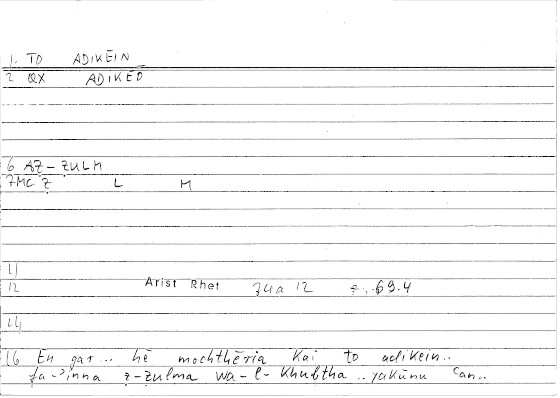 1. TO ADIKEIN
2 QX ADIKEO
6 AẒ-ẒULM
7MC Ẓ L M
11
12 Arist Rhet 12 69.4
14
16 En gar... hē mochthēria kai to adikein..
fa-ʾinna ẓ-ẓulma wa-l-khubtha .. yakūnu ʿan..